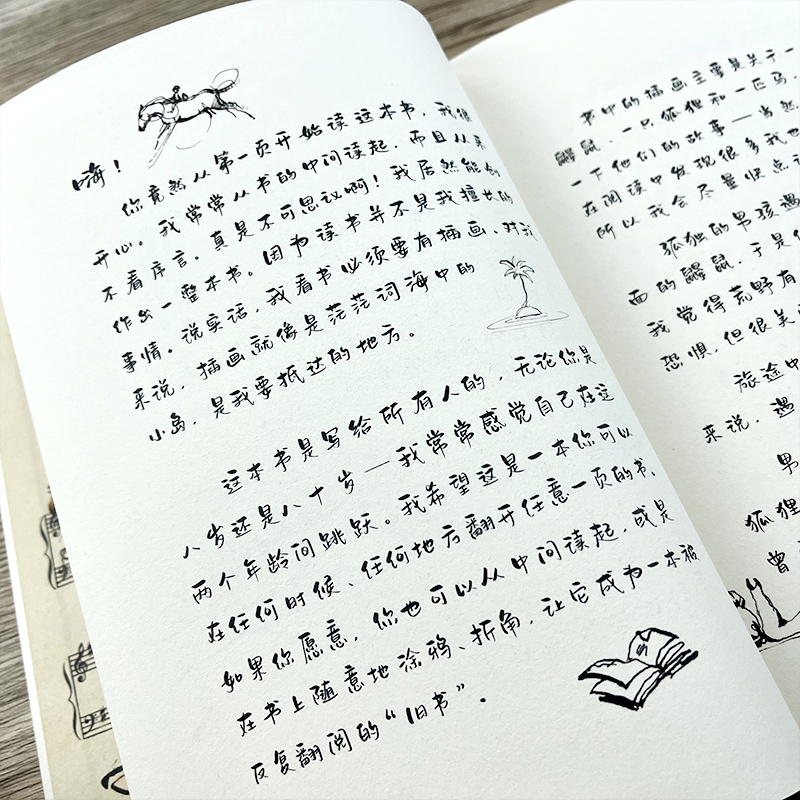 嗨！
你竟然从第一页开始读这本书，我很
开心。我常常从书的中间读起，而且从来
不看序言。真是不可思议啊！我居然能创
作出一整本书。因为读书并不是我擅长的
事情。说实话，我看书必须要有插画，对我
来说，插画就像是茫茫词海中的
小岛，是我要抵达的地方。
这本书是写给所有人的，无论你是
八岁还是八十岁——我常常感觉自己在这
两个年龄间跳跃。我希望这是一本你可以
在任何时候、任何地方翻开任意一页的书。
如果你愿意，你也可以从中间读起，或是
在书上随意地涂鸦、折角，让它成为一本被
反复翻阅的“旧书”。
书中的插画主要是关于一
鼹鼠、一只狐狸和一匹马，
一下他们的故事——当然
在阅读中发现很多我也
所以我会尽量快点
孤独的男孩遇
面的鼹鼠，于是
我觉得荒野有
恐惧，但很美
旅途中
来说，遇
男
狐狸
曾